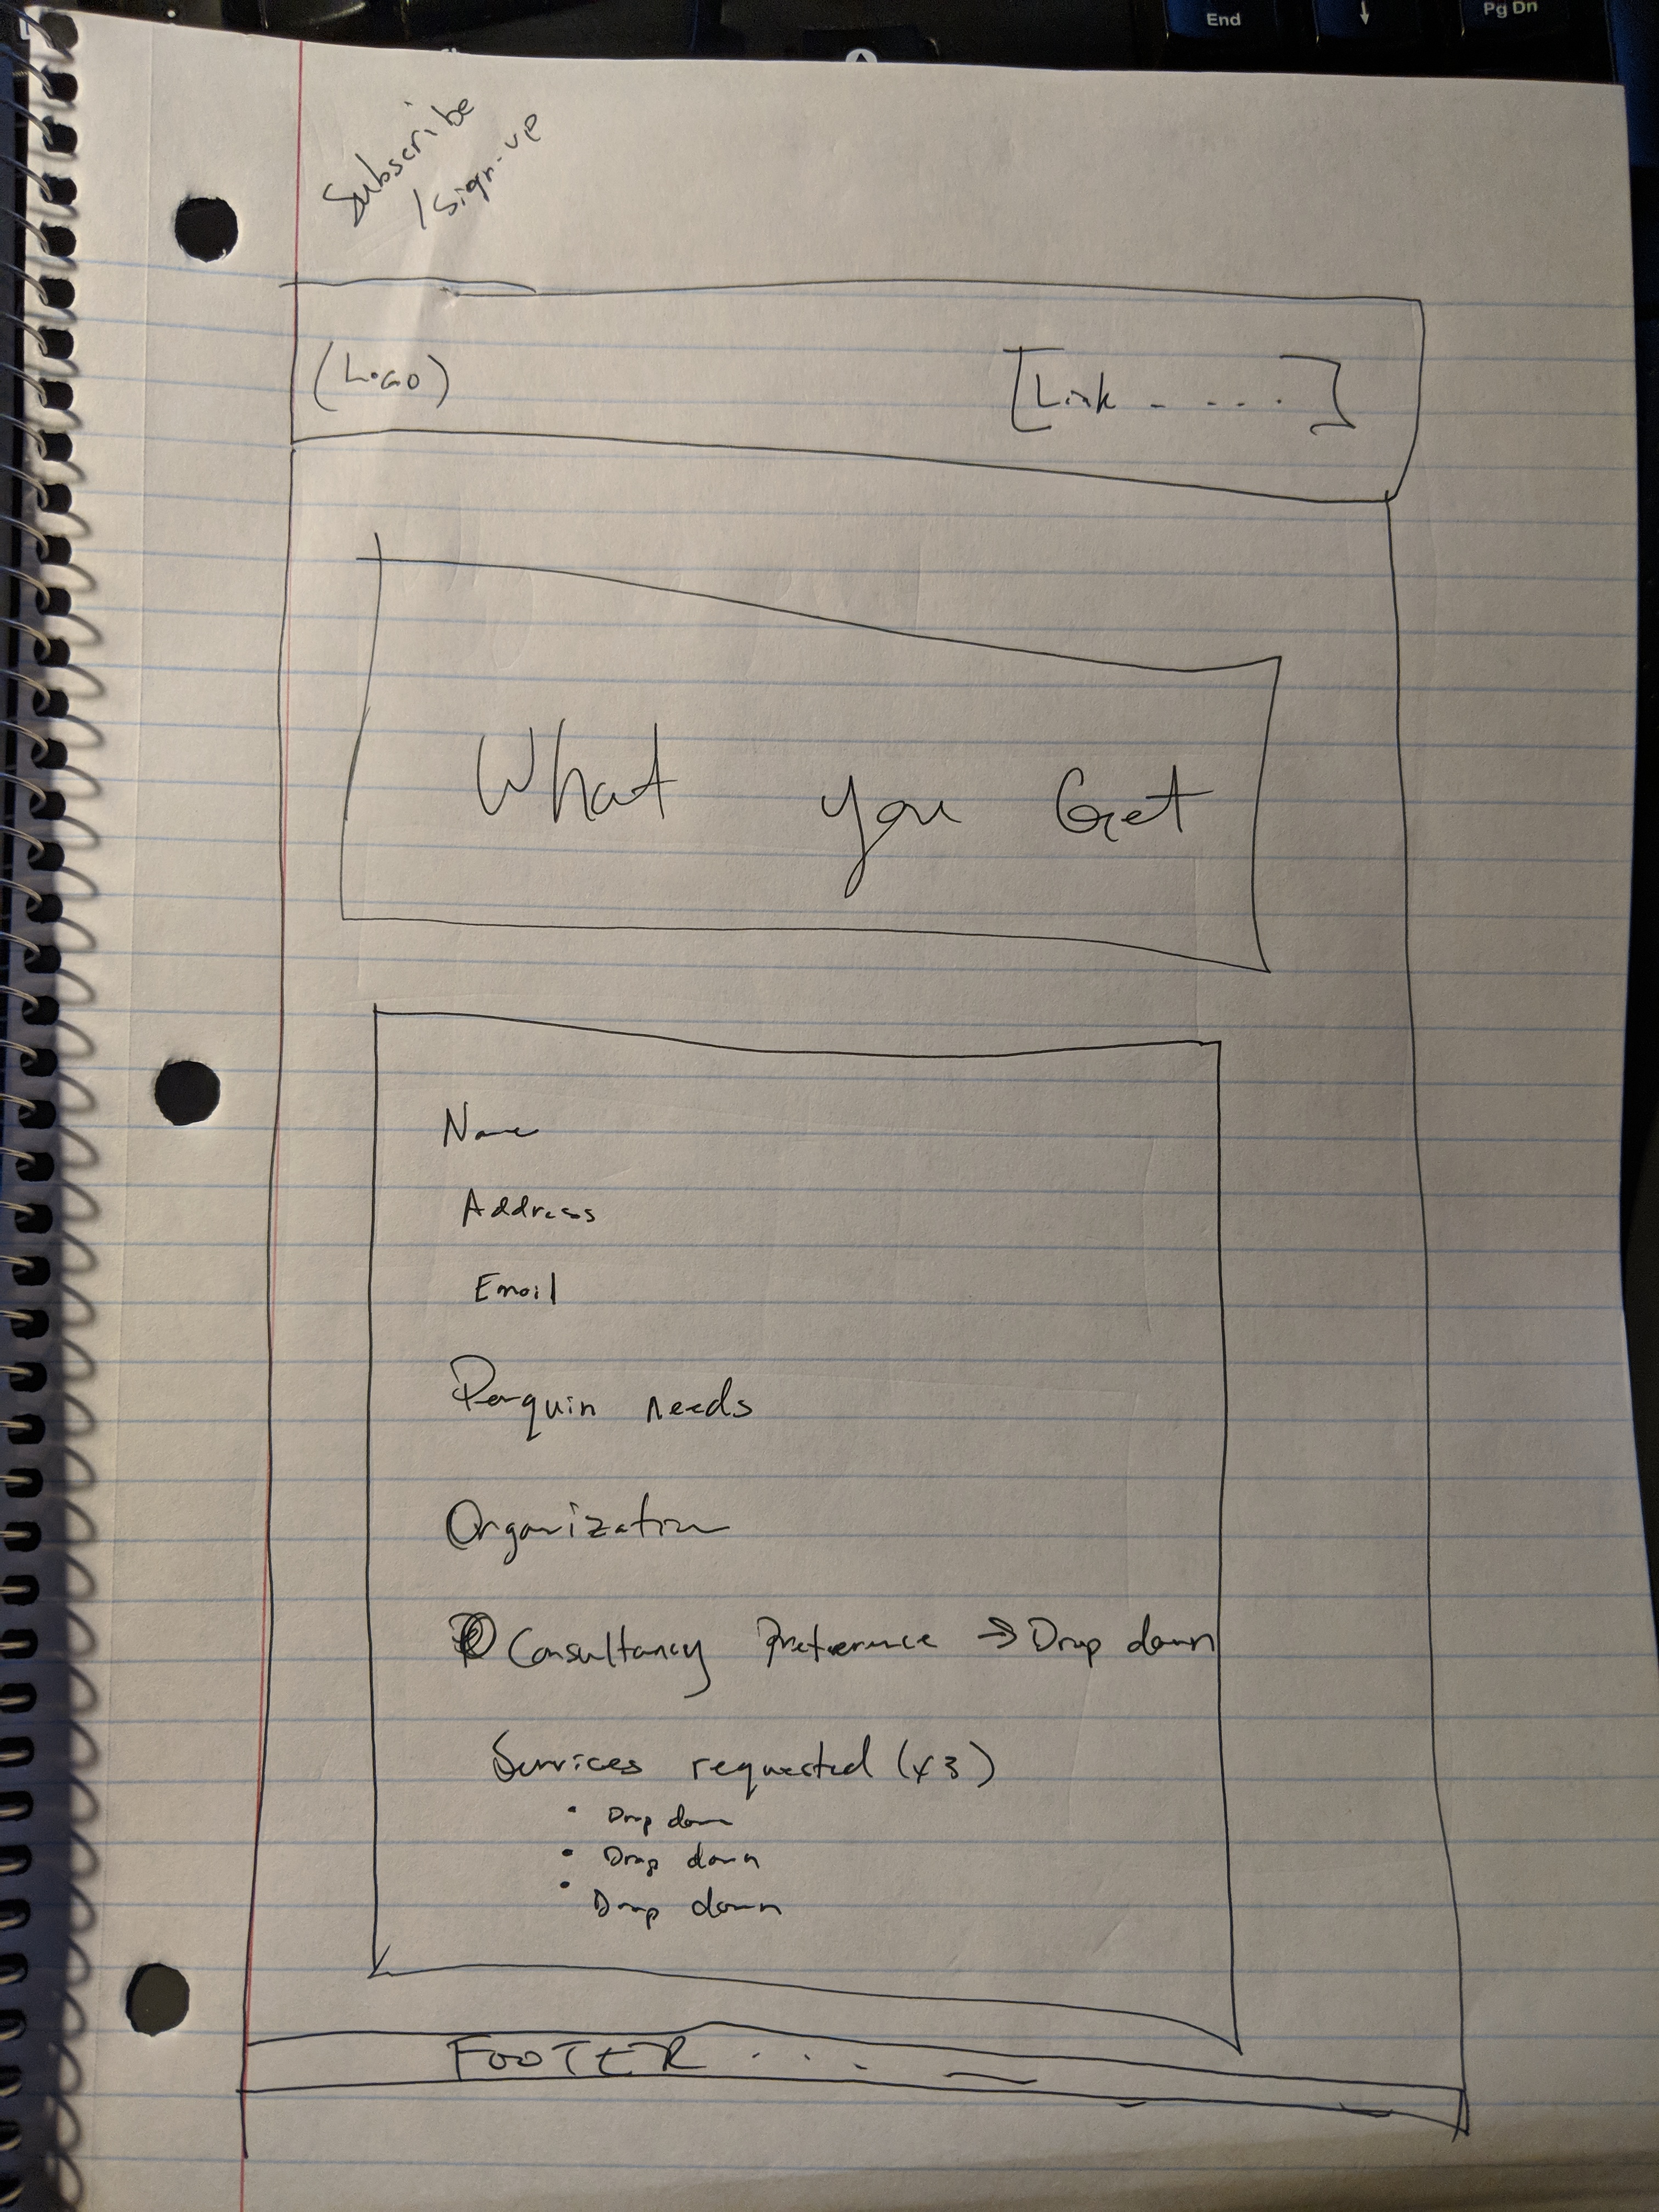 End
↓
Pg Dn
Subscribe
/sign-up
(Logo)
[Link - - - - ]
What you Get
Name
Address
Email
Penguin needs
Organization
Consultancy Preference → Drop down
Services requested (x3)
• Drop down
• Drop down
• Drop down
FOOTER . . .